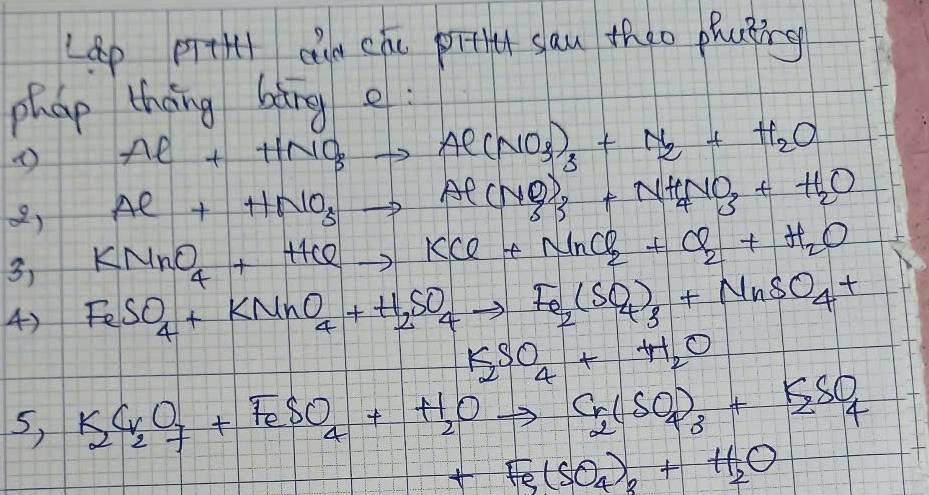 Lập PTHH của các PTHH sau theo phương
pháp thăng bằng e:
1) Al + HNO3 → Al(NO3)3 + N2 + H2O
2, Al + HNO3 → Al(NO3)3 + NH4NO3 + H2O
3, KMnO4 + HCl → KCl + MnCl2 + Cl2 + H2O
4) FeSO4 + KMnO4 + H2SO4 → Fe2(SO4)3 + MnSO4 +
K2SO4 + H2O
5, K2Cr2O7 + FeSO4 + H2O → Cr2(SO4)3 + K2SO4
+ Fe2(SO4)3 + H2O